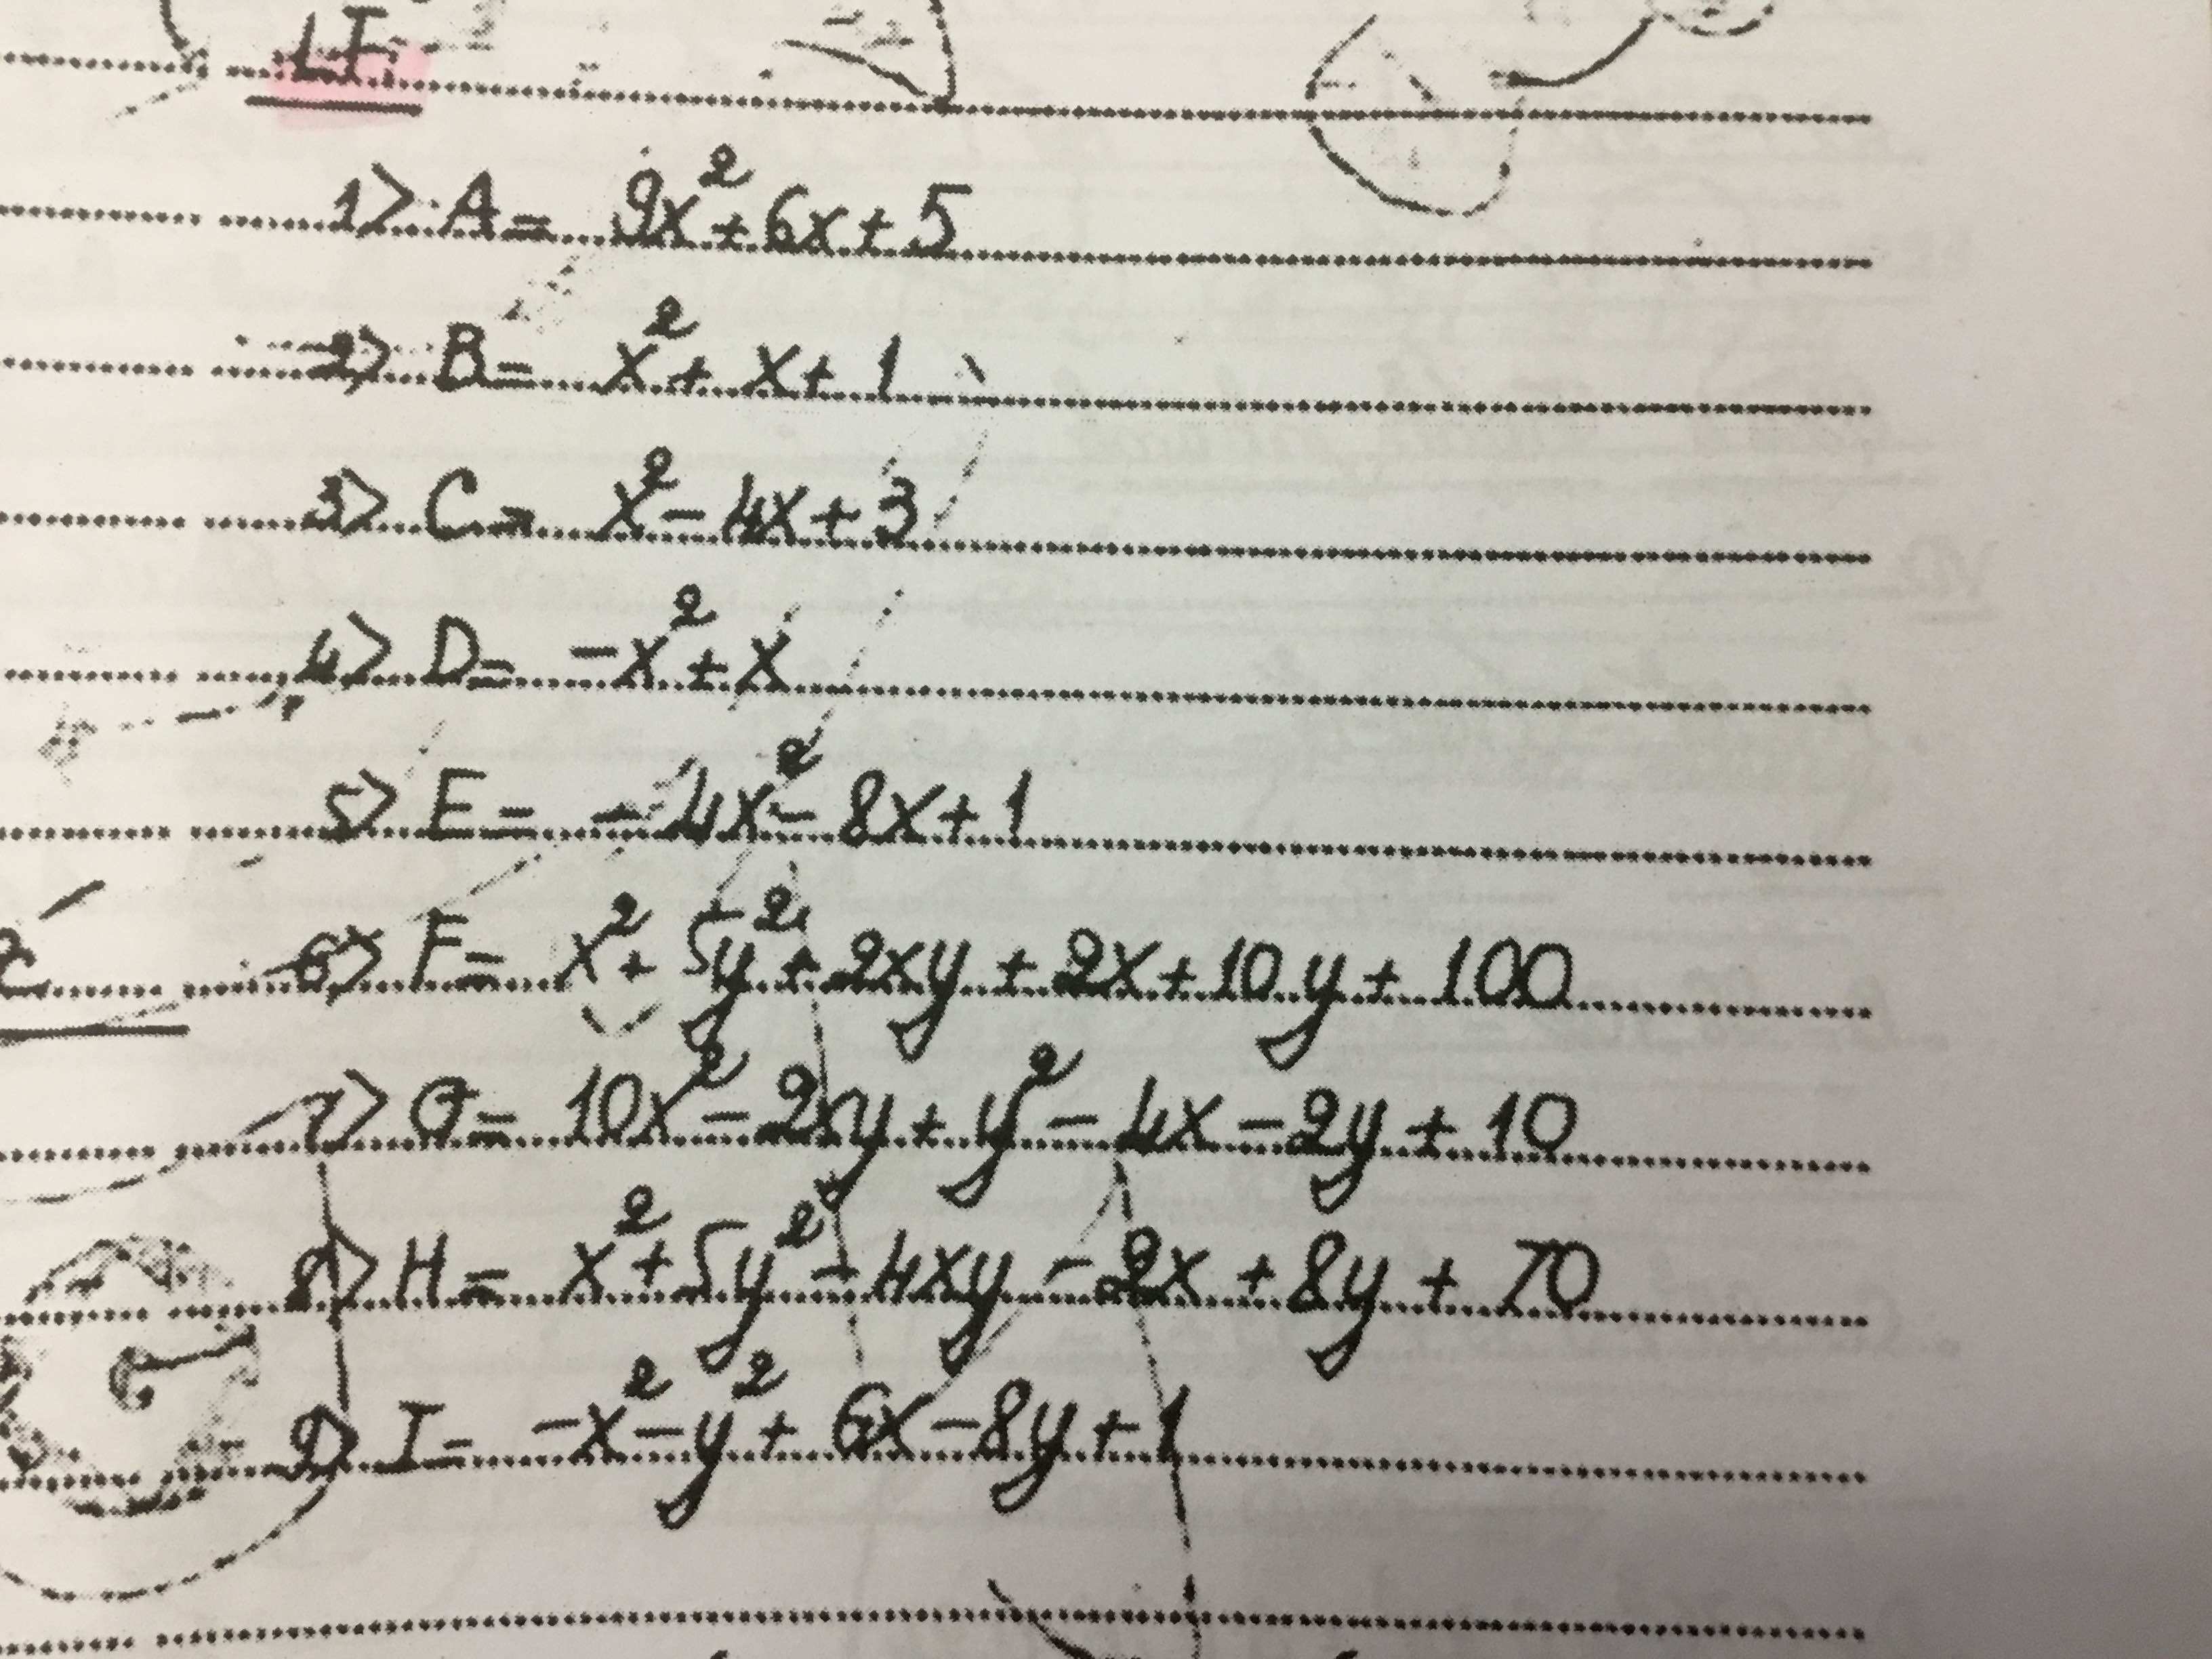 LT:
1> A = 9x² + 6x + 5
2> B = x² + x + 1
3> C = x² - 4x + 3
4> D = -x² + x
5> E = -4x² - 8x + 1
6> F = x² + 5y² + 2xy + 2x + 10y + 100
7> G = 10x² - 2xy + y² - 4x - 2y + 10
8> H = x² + 5y² - 4xy - 2x + 8y + 70
9> I = -x² - y² + 6x - 8y + 1